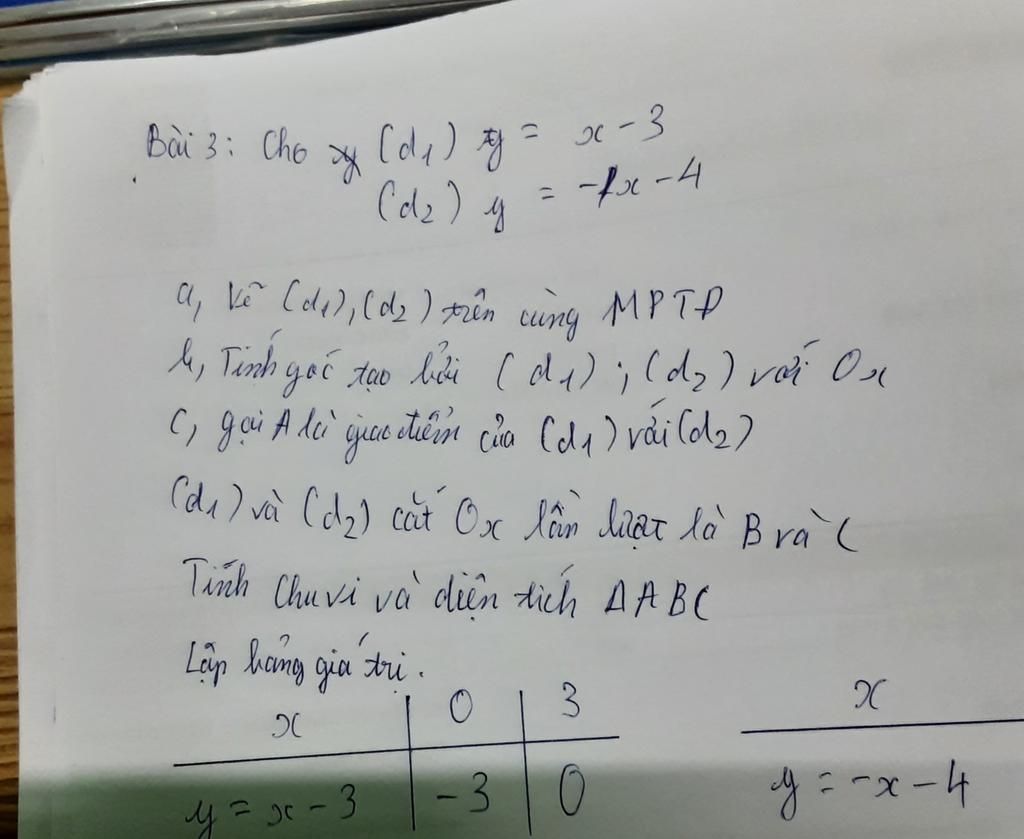 Bài 3: Cho (d1) y = x - 3
(d2) y = -x - 4
a, Vẽ (d1), (d2) trên cùng MPTĐ
b, Tính góc tạo bởi (d1) ; (d2) với Ox
c, gọi A là giao điểm của (d1) với (d2)
(d1) và (d2) cắt Ox lần lượt là B và C
Tính chu vi và diện tích ΔABC
Lập bảng giá trị.
x 0 3 x
y = x - 3 -3 0 y = -x - 4